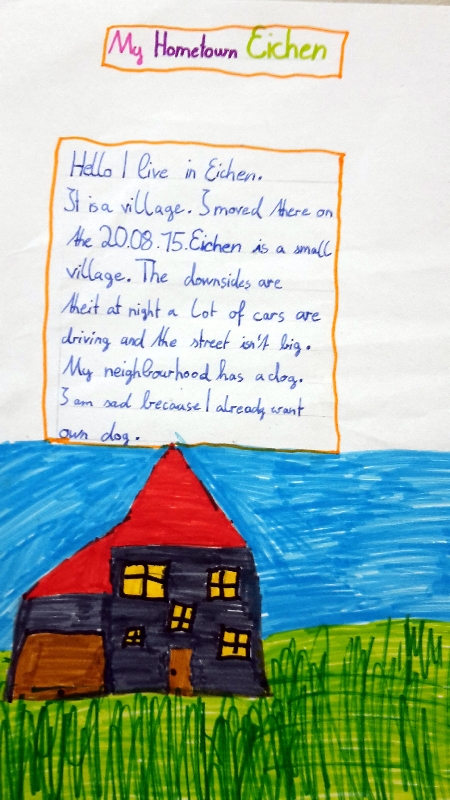 My Hometown Eichen
Hello I live in Eichen.
It is a village. I moved there on
the 20.08.15. Eichen is a small
village. The downsides are
theit at night a lot of cars are
driving and the street isn't big.
My neighbourhood has a dog.
I am sad because I already want
own dog.